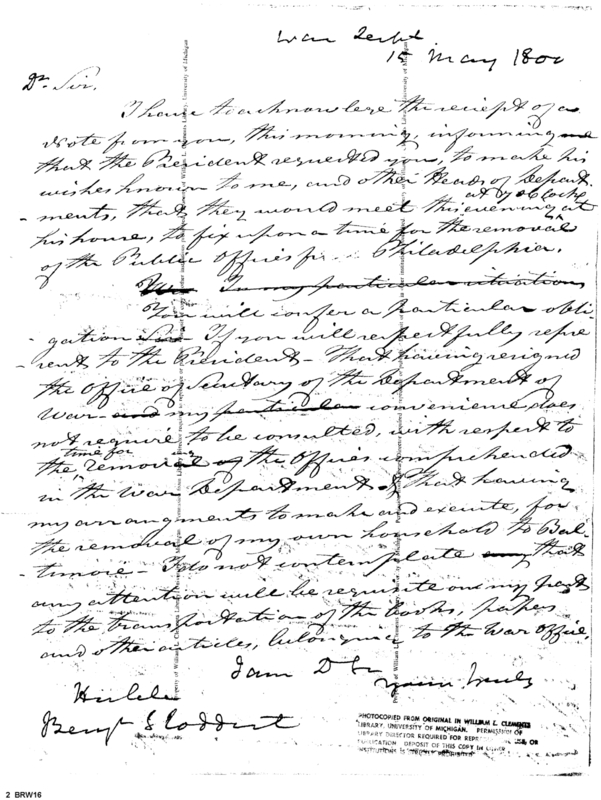 War Depmt
15 May 1800
Dr. Sir,
I have to acknowledge the reciept of a
note from you, this morning, informing me
that the President requested you, to make his
wishes known to me, and other Heads of Depart-
ments, that they would meet this evening at 7 oClock at
his house, to fix upon a time for the removal
of the Public Offices Philadelphia.
In my particular situation
You will confer a particular obli-
gation Sir If you will respectfully repre-
sent to the President - That having resigned
the Office of Secretary of the Department of
War and my particular convenience does
not require to be consulted, with respect to
the time for removal of the Offices comprehended
in the War Department That having
my arrangments to make and execute, for
the removal of my own household to Bal-
timore - I do not contemplate any that
any attention will be requisite on my part
to the transportation of the books, papers
and other articles, belonging to the War Office,
I am D Sir
yours truly
Honble
Benjn Stoddert
PHOTOCOPIED FROM ORIGINAL IN WILLIAM L. CLEMENTS
LIBRARY, UNIVERSITY OF MICHIGAN. PERMISSION OF
LIBRARY DIRECTOR REQUIRED FOR OR
PUBLICATION DEPOSIT OF THIS COPY IN OTHER
INSTITUTIONS IS PROHIBITED
2 BRW16